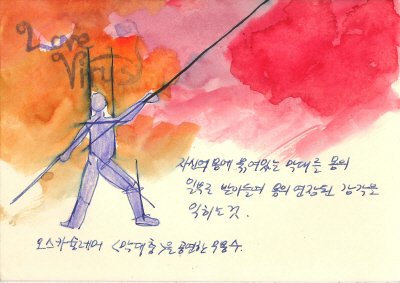 Love
Virus
자신의 몸에 묶여있는 막대를 몸의
일부로 받아들여 몸의 연장된 감각을
익히는 것.
오스카 슐레머 <막대춤>을 공연한 무용수.